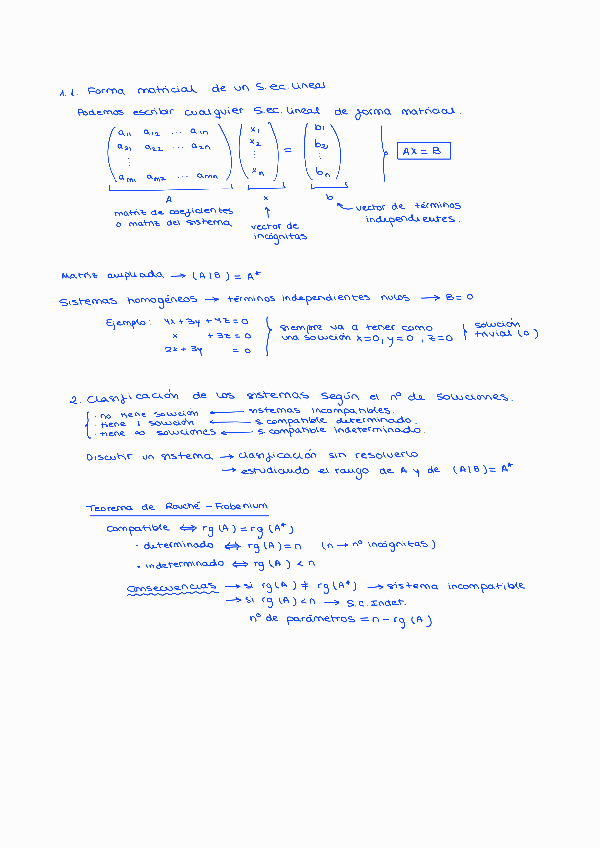 1.1. Forma matricial de un S.ec.lineal
Podemos escribir cualquier S.ec.lineal de forma matricial.
a11 a12 ... a1n x1 b1
a21 a22 ... a2n x2 = b2 AX = B
⋮ ⋮ ⋮
am1 am2 ... amn xn bn
A x b
matriz de coeficientes o matriz del sistema
vector de incógnitas
vector de términos independientes.
Matriz ampliada → (A|B) = A*
Sistemas homogéneos → términos independientes nulos → B = 0
Ejemplo: 4x + 3y + 4z = 0
x + 3z = 0
2x + 3y = 0
siempre va a tener como
una solución x=0, y=0, z=0
solución
trivial (0)
2. Clasificación de los sistemas según el nº de soluciones.
· no tiene solución ← sistemas incompatibles.
· tiene 1 solución ← s.compatible determinado.
· tiene ∞ soluciones ← s.compatible indeterminado.
Discutir un sistema → clasificación sin resolverlo
→ estudiando el rango de A y de (A|B) = A*
Teorema de Rouché - Frobenium
Compatible ⇔ rg(A) = rg(A*)
· determinado ⇔ rg(A) = n (n → nº incógnitas)
· indeterminado ⇔ rg(A) < n
Consecuencias → si rg(A) ≠ rg(A*) → sistema incompatible
→ si rg(A) < n → S.C.Indet.
nº de parámetros = n - rg(A)